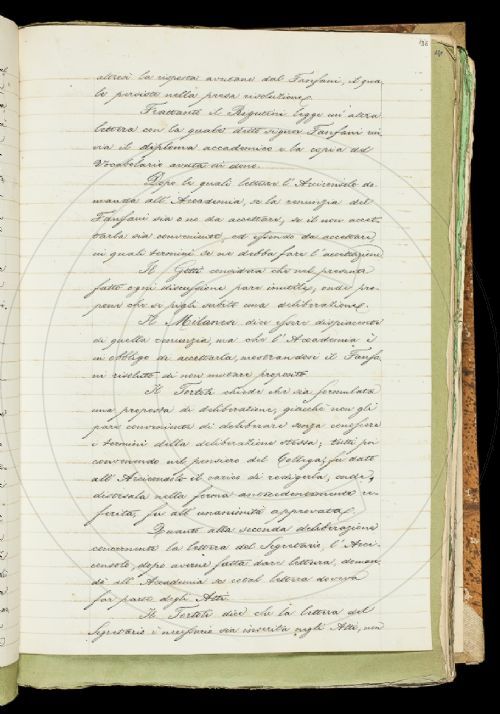 altresì la risposta avutane dal Fanfani, il qua-
le persiste nella presa risoluzione.
Frattanto il Bugottini legge un'altra
lettera con la quale detto signor Fanfani rin-
via il diploma accademico e la copia del
Vocabolario avuta in dono.
Dopo le quali letture l'Arciconsolo do-
manda all'Accademia, se la renunzia del
Fanfani sia o no da accettare, se il non accet-
tarla sia conveniente, ed essendo da accettare,
in quali termini se ne debba fare l'accettazione.
Il Gotti considera che nel presente
fatto ogni discussione pare inutile, onde pro-
pone che si pigli subito una deliberazione.
Il Milanesi dice essere dispiacente
di quella renunzia, ma che l'Accademia è
in obbligo di accettarla, mostrandosi il Fanfa-
ni risoluto di non mutare proposto.
Il Tortoli chiede che sia formulata
una proposta di deliberazione, giacchè non gli
pare conveniente di deliberare senza conoscere
i termini della deliberazione stessa; tutti poi
convenendo nel pensiero del Collega, fu dato
all'Arciconsolo il carico di redigerla, onde,
distesala nella forma antecedentemente re-
ferita, fu all'unanimità approvata.
Quanto alla seconda deliberazione
concernente la lettera del Segretario, l'Arci-
consolo, dopo averne fatta dare lettura, doman-
dò all'Accademia se cotal lettera doveva
far parte degli Atti.
Il Tortoli dice che la lettera del
Segretario è necessario sia inserita negli Atti, non